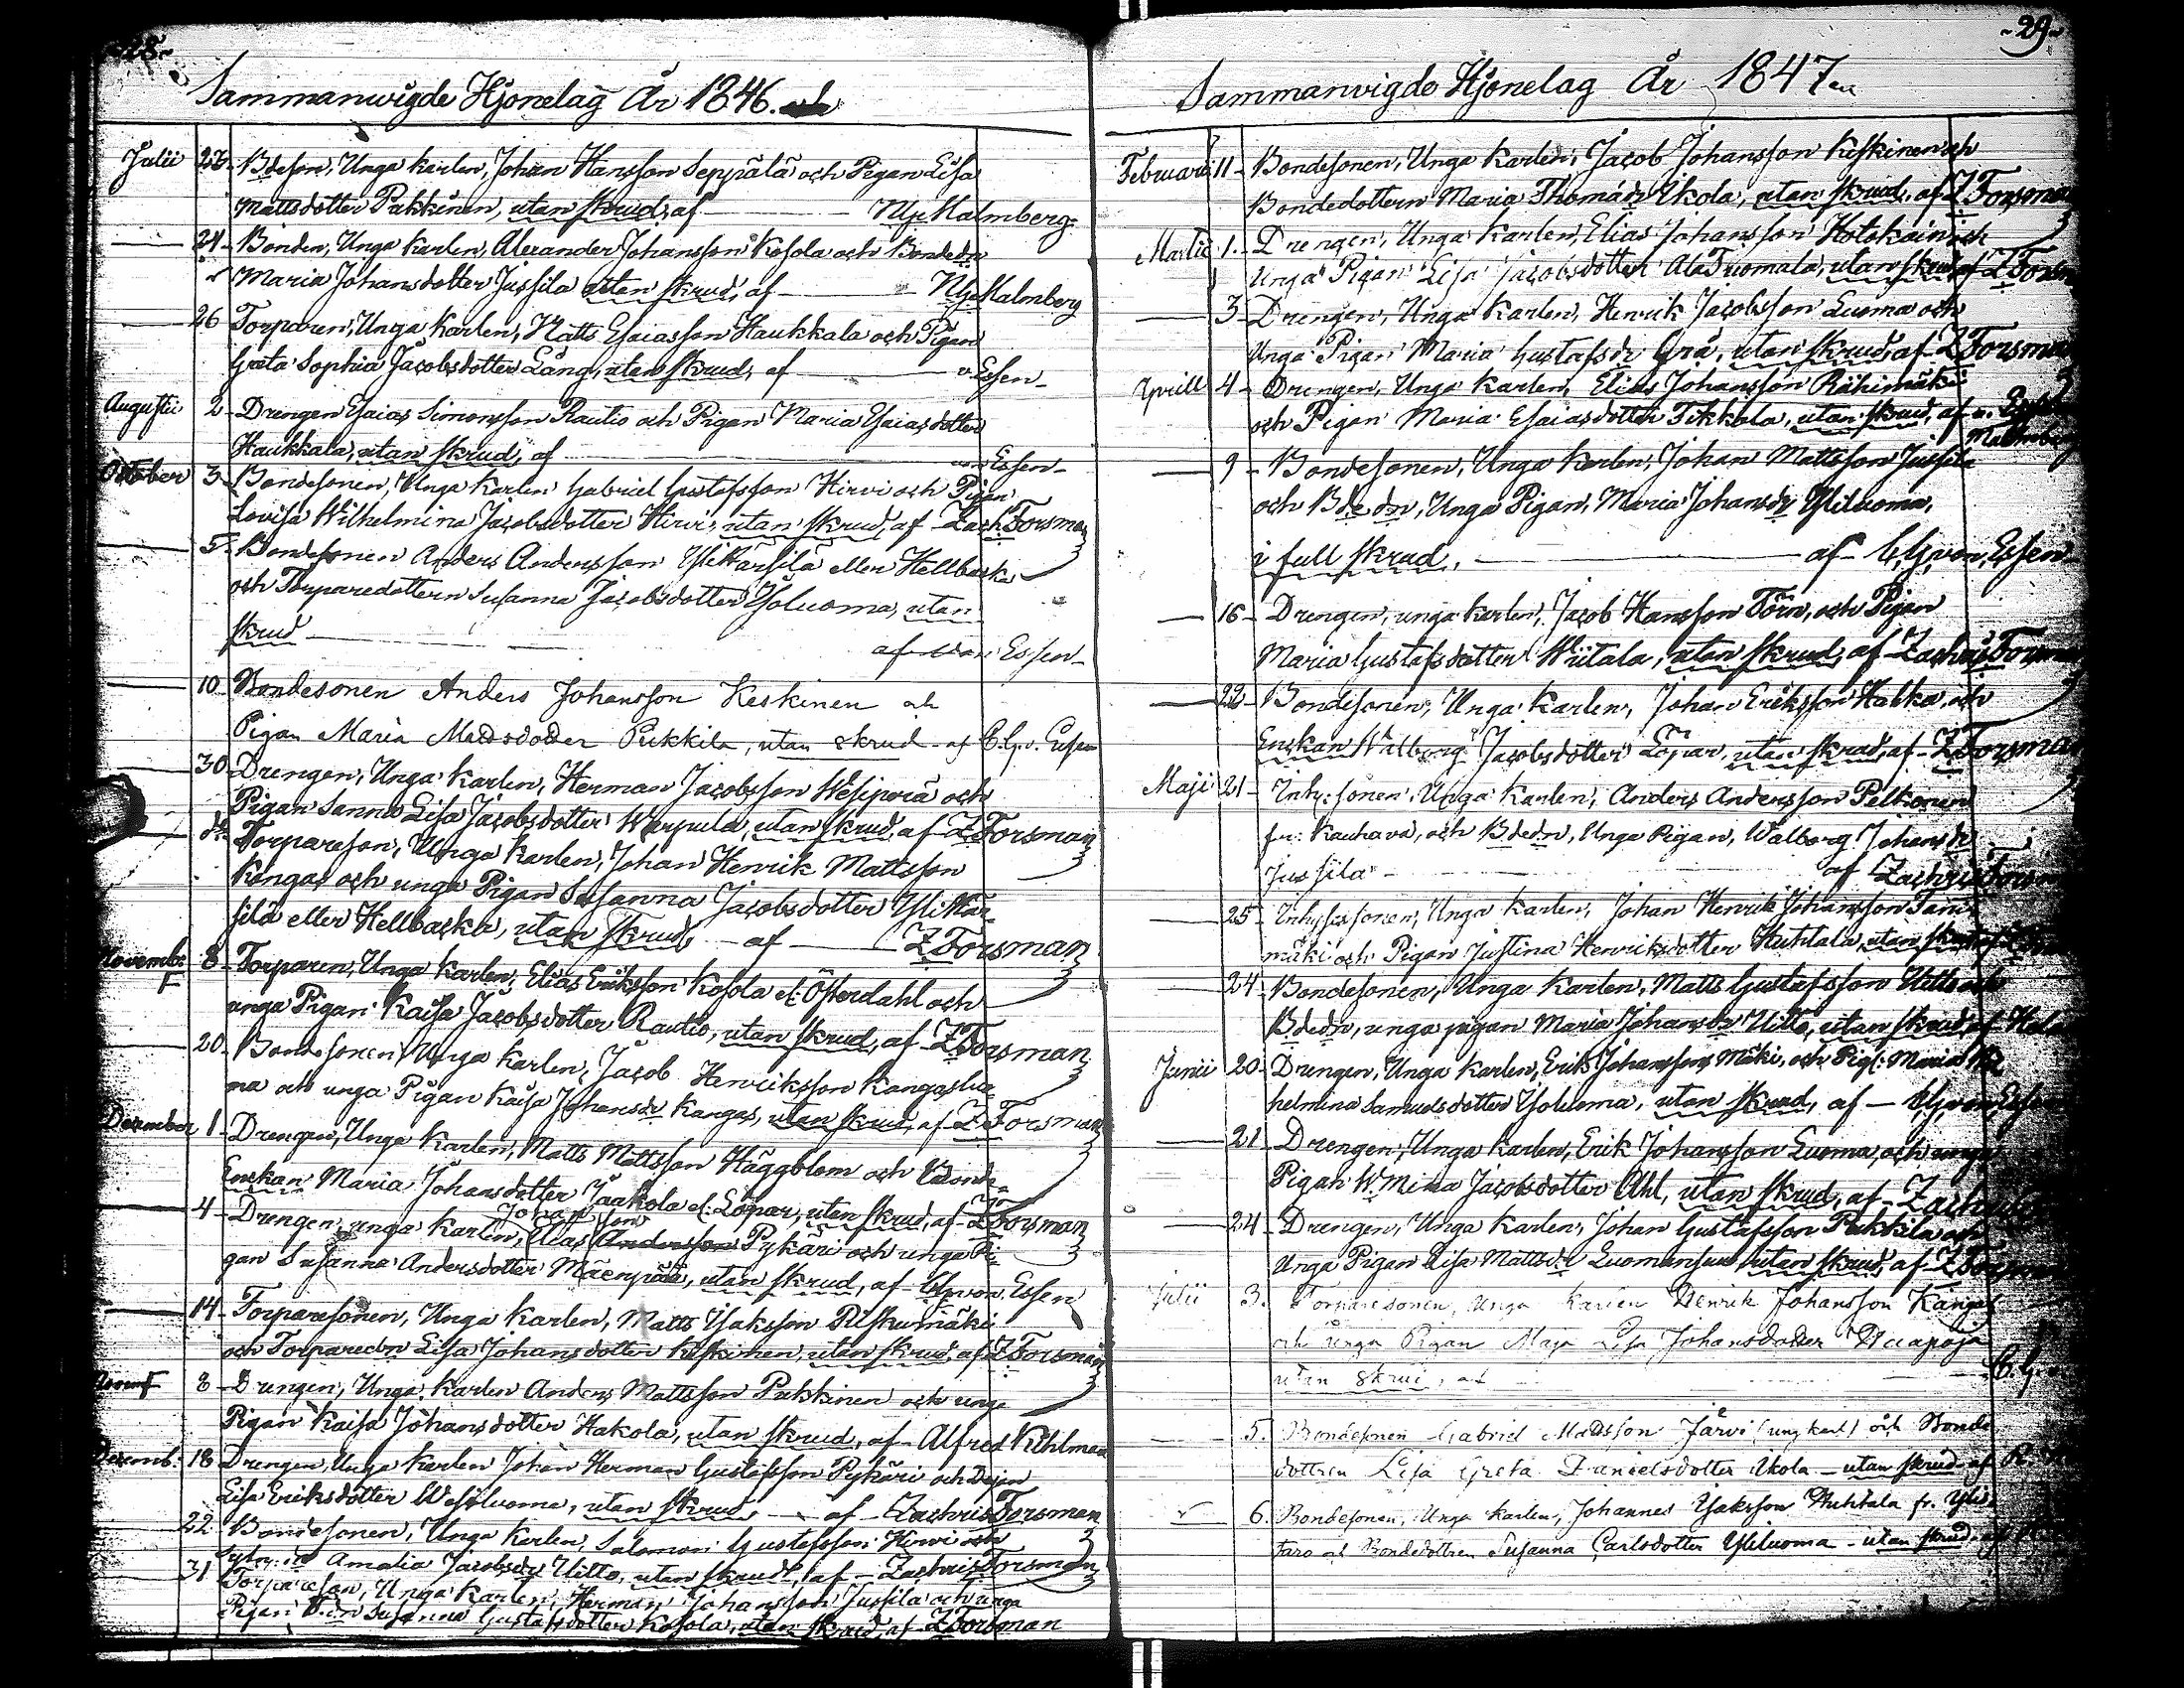 -28-
Sammanwigde Hjonelag År 1846.
Julii 23 Bdeson, Unga karlen, Johan Hansson Seppälä och Pigan Lisa
Mattsdotter Pukkinen, utan skrud, af Malmberg
24 Bonden, Unga Karlen, Alexander Johansson Kosola och Bondedn
Maria Johansdotter Jussila utan skrud, af Malmberg
26 Torparen, Unga Karlen, Matts Esaiasson Haukkala och Pigan
Greta Sophia Jacobsdotter Lång, utan skrud, af v. Essen
Augustii 2 Drengen Esaias Simonsson Rautio och Pigan Maria Esaiasdotter
Haukkala, utan skrud, af von Essen
October 3 Bondesonen, Unga Karlen Gabriel Gustafsson Hirvi och Pigan
Lovisa Wilhelmina Jacobsdotter Hirvi, utan skrud, af Zach. Forsman
5 Bondesonen Anders Andersson Ylikärsilä eller Hellbacka
och Torparedottern Susanna Jacobsdotter Isoluoma, utan
skrud af von Essen
10 Bondesonen Anders Johansson Keskinen och
Pigan Maria Mattsdotter Pukkila, utan skrud af C.G.v. Essen
30 Drengen, Unga Karlen, Herman Jacobsson Wesiporä och
Pigan Sanna Lisa Jacobsdotter Warpula, utan skrud, af Z Forsman
do Torpareson, Unga Karlen, Johan Henrik Mattsson
Kangas och unga Pigan Susanna Jacobsdotter Ylikär-
silä eller Hellbacka, utan skrud, af Z Forsman
Novemb. 8 Torparen, Unga Karlen, Elias Eriksson Kosola el. Österdahl och
unga Pigan Kaisa Jacobsdotter Rautio, utan skrud, af Z Forsman
20 Bondesonen, Unga Karlen, Jacob Henriksson Kangasluo-
ma och unga Pigan Kaisa Johansdr Kangas, utan skrud, af Z Forsman
December 1 Drengen, Unga Karlen, Matts Mattsson Häggblom och Bonde-
Enckan Maria Johansdotter Jaakola el. Lopar, utan skrud, af Z Forsman
Johansson
4 Drengen, unga Karlen, Elias Andersson Pykäri och unga Pi-
gan Susanna Andersdotter Mäenpää, utan skrud, af C.G. von Essen
14 Torparesonen, Unga Karlen, Matts Isaksson Ruskumäki
och Torparedn Lisa Johansdotter Keskinen, utan skrud, af Z Forsman
8 Drengen, Unga Karlen Anders Mattsson Pukkinen och unga
Pigan Kaisa Johansdotter Hakola, utan skrud, af Alfred Kihlman
Decemb. 18 Drengen, Unga Karlen Johan Herman Gustafsson Pykäri och Pigan
Lisa Eriksdotter Wesiluoma, utan skrud, af Zachris Forsman
22 Bondesonen, Unga Karlen, Salomon Gustafsson Hirvi och
Amalia Jacobsdr Uitto, utan skrud, af Zachris Forsman
31 Torpareson, Unga Karlen, Herman Johansson Jussila och unga
Pigan Susanna Gustafsdotter Kosola, utan skrud, af Z Forsman
-29-
Sammanvigde Hjonelag År 1847
Februarii 11 Bondesonen, Unga Karlen, Jacob Johansson Keskinen och
Bondedottern Maria Thomasdr Ikola, utan skrud, af Z Forsman
Martii 1 Drengen, Unga Karlen, Elias Johansson Hotokain och
Unga Pigan Lisa Jacobsdotter AlaTuomala, utan skrud, af Z Forsm
3 Drengen, Unga Karlen, Henrik Jacobsson Luoma och
Unga Pigan Maria Gustafsdr Grå, utan skrud, af Z Forsman
Aprill 4 Drengen, Unga Karlen, Elias Johansson Rähimäki
och Pigan Maria Esaiasdotter Tikkala, utan skrud, af
Malmberg
9 Bondesonen, Unga Karlen, Johan Mattsson Jussila
och Bdedn, Unga Pigan, Maria Johansdr Yliluoma,
i full skrud, af C.G. von Essen
16 Drengen, unga Karlen, Jacob Hansson Törn, och Pigan
Maria Gustafsdotter Wiitala, utan skrud, af Zachris Forsman
22 Bondesonen, Unga Karlen, Johan Eriksson Hakka, och
Enckan Walborg Jacobsdotter Lopar, utan skrud, af Z Forsman
Maji 21 Inhy: sonen, Unga Karlen, Anders Andersson Pelkonen
fr. Kauhava, och Bdedn, Unga Pigan, Walborg Johansdr
Jussila af Zachris Forsman
25 Inhysessonen, Unga Karlen, Johan Henrik Johansson Tani-
mäki och Pigan Justina Henriksdotter Huhtala, utan skrud, af
24 Bondesonen, Unga Karlen, Matts Gustafsson Uitto och
Bdedn, unga pigan Maria Johansdr Uitto, utan skrud, af
Junii 20 Drengen, Unga Karlen, Erik Johansson Mäki, och Pig: Maria Wil-
helmina Samuelsdotter Isoluoma, utan skrud, af C.G. von Essen
21 Drengen, Unga Karlen, Erik Johansson Luoma, och unga
Pigan W.mina Jacobsdotter Ahl, utan skrud, af Zachris
24 Drengen, Unga Karlen, Johan Gustafsson Pukkila och
Unga Pigan Lisa Mattsdr Luomansuu, utan skrud, af Z Forsman
Julii 3. Torparesonen, unga Karlen Henrik Johansson Kangas
och unga Pigan Maja Lisa Johansdotter Haapoja
utan skrud, af C.G.
5. Bondesonen Gabriel Mattsson Järvi (ung karl) och Bonde
dottren Lisa Greta Danielsdotter Ikola - utan skrud af
6. Bondesonen, Unga Karlen, Johannes Isaksson Huhtala fr. Ylis-
taro och Bondedottren Susanna Carlsdotter Yliluoma - utan skrud af